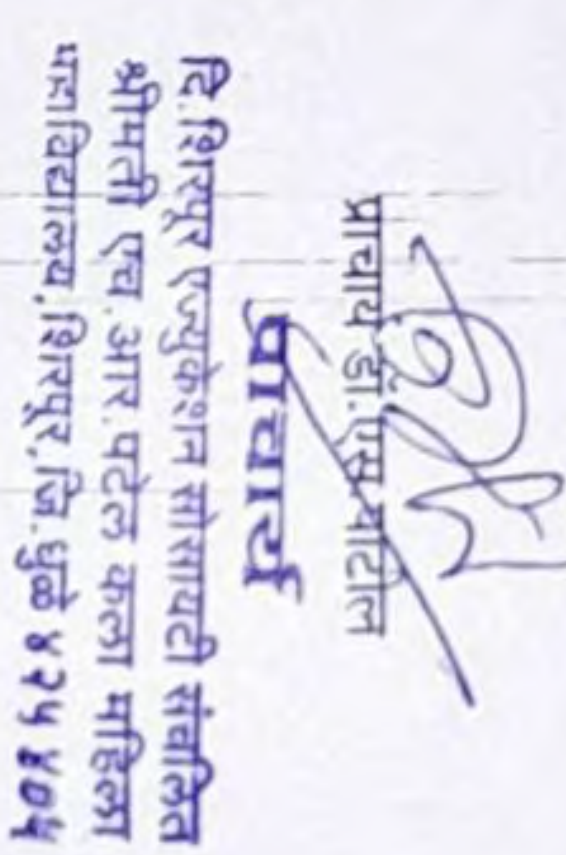 प्राचार्य डॉ. एस. पाटील
प्राचार्य
दि.शिरपूर एज्युकेशन सोसायटी संचलित
श्रीमती एच.आर.पटेल कला महिला
महाविद्यालय,शिरपूर,जि.धुळे ४२५४०५